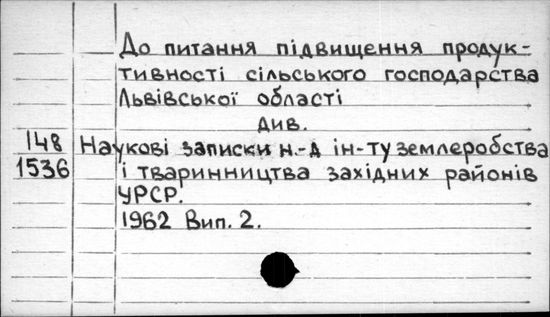 До питання підвищення продук-
тивності сільського господарства
Львівської області
див.
148 Наукові записки н.-д ін-ту землеробства
1536 і тваринництва західних районів
УРСР.
1962 Вип. 2.